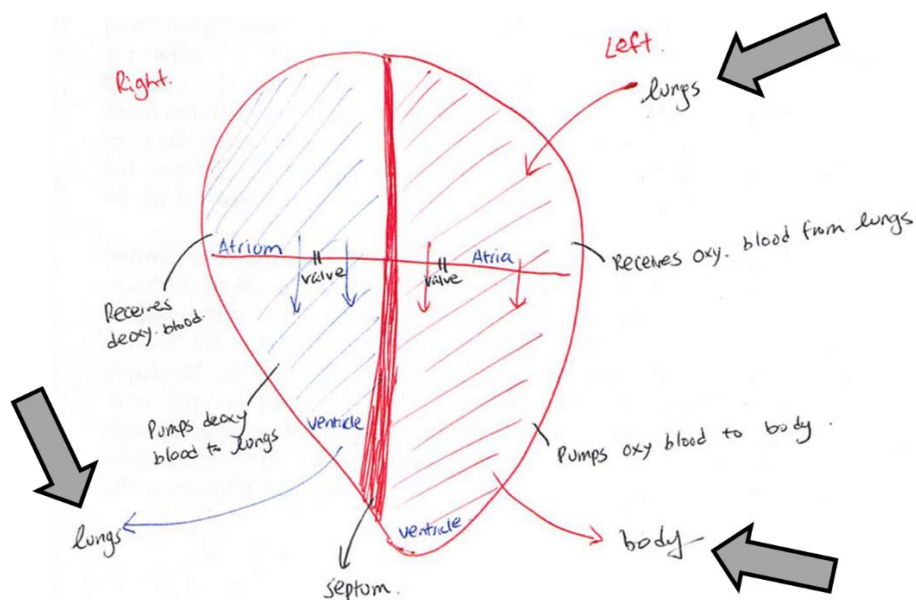 Right.
Left.
lungs
Atrium
valve
valve
Atria
Receives oxy. blood from lungs
Receives
deoxy. blood.
Pumps deoxy
blood to lungs
ventricle
Pumps oxy blood to body.
lungs
ventricle
body
septum.